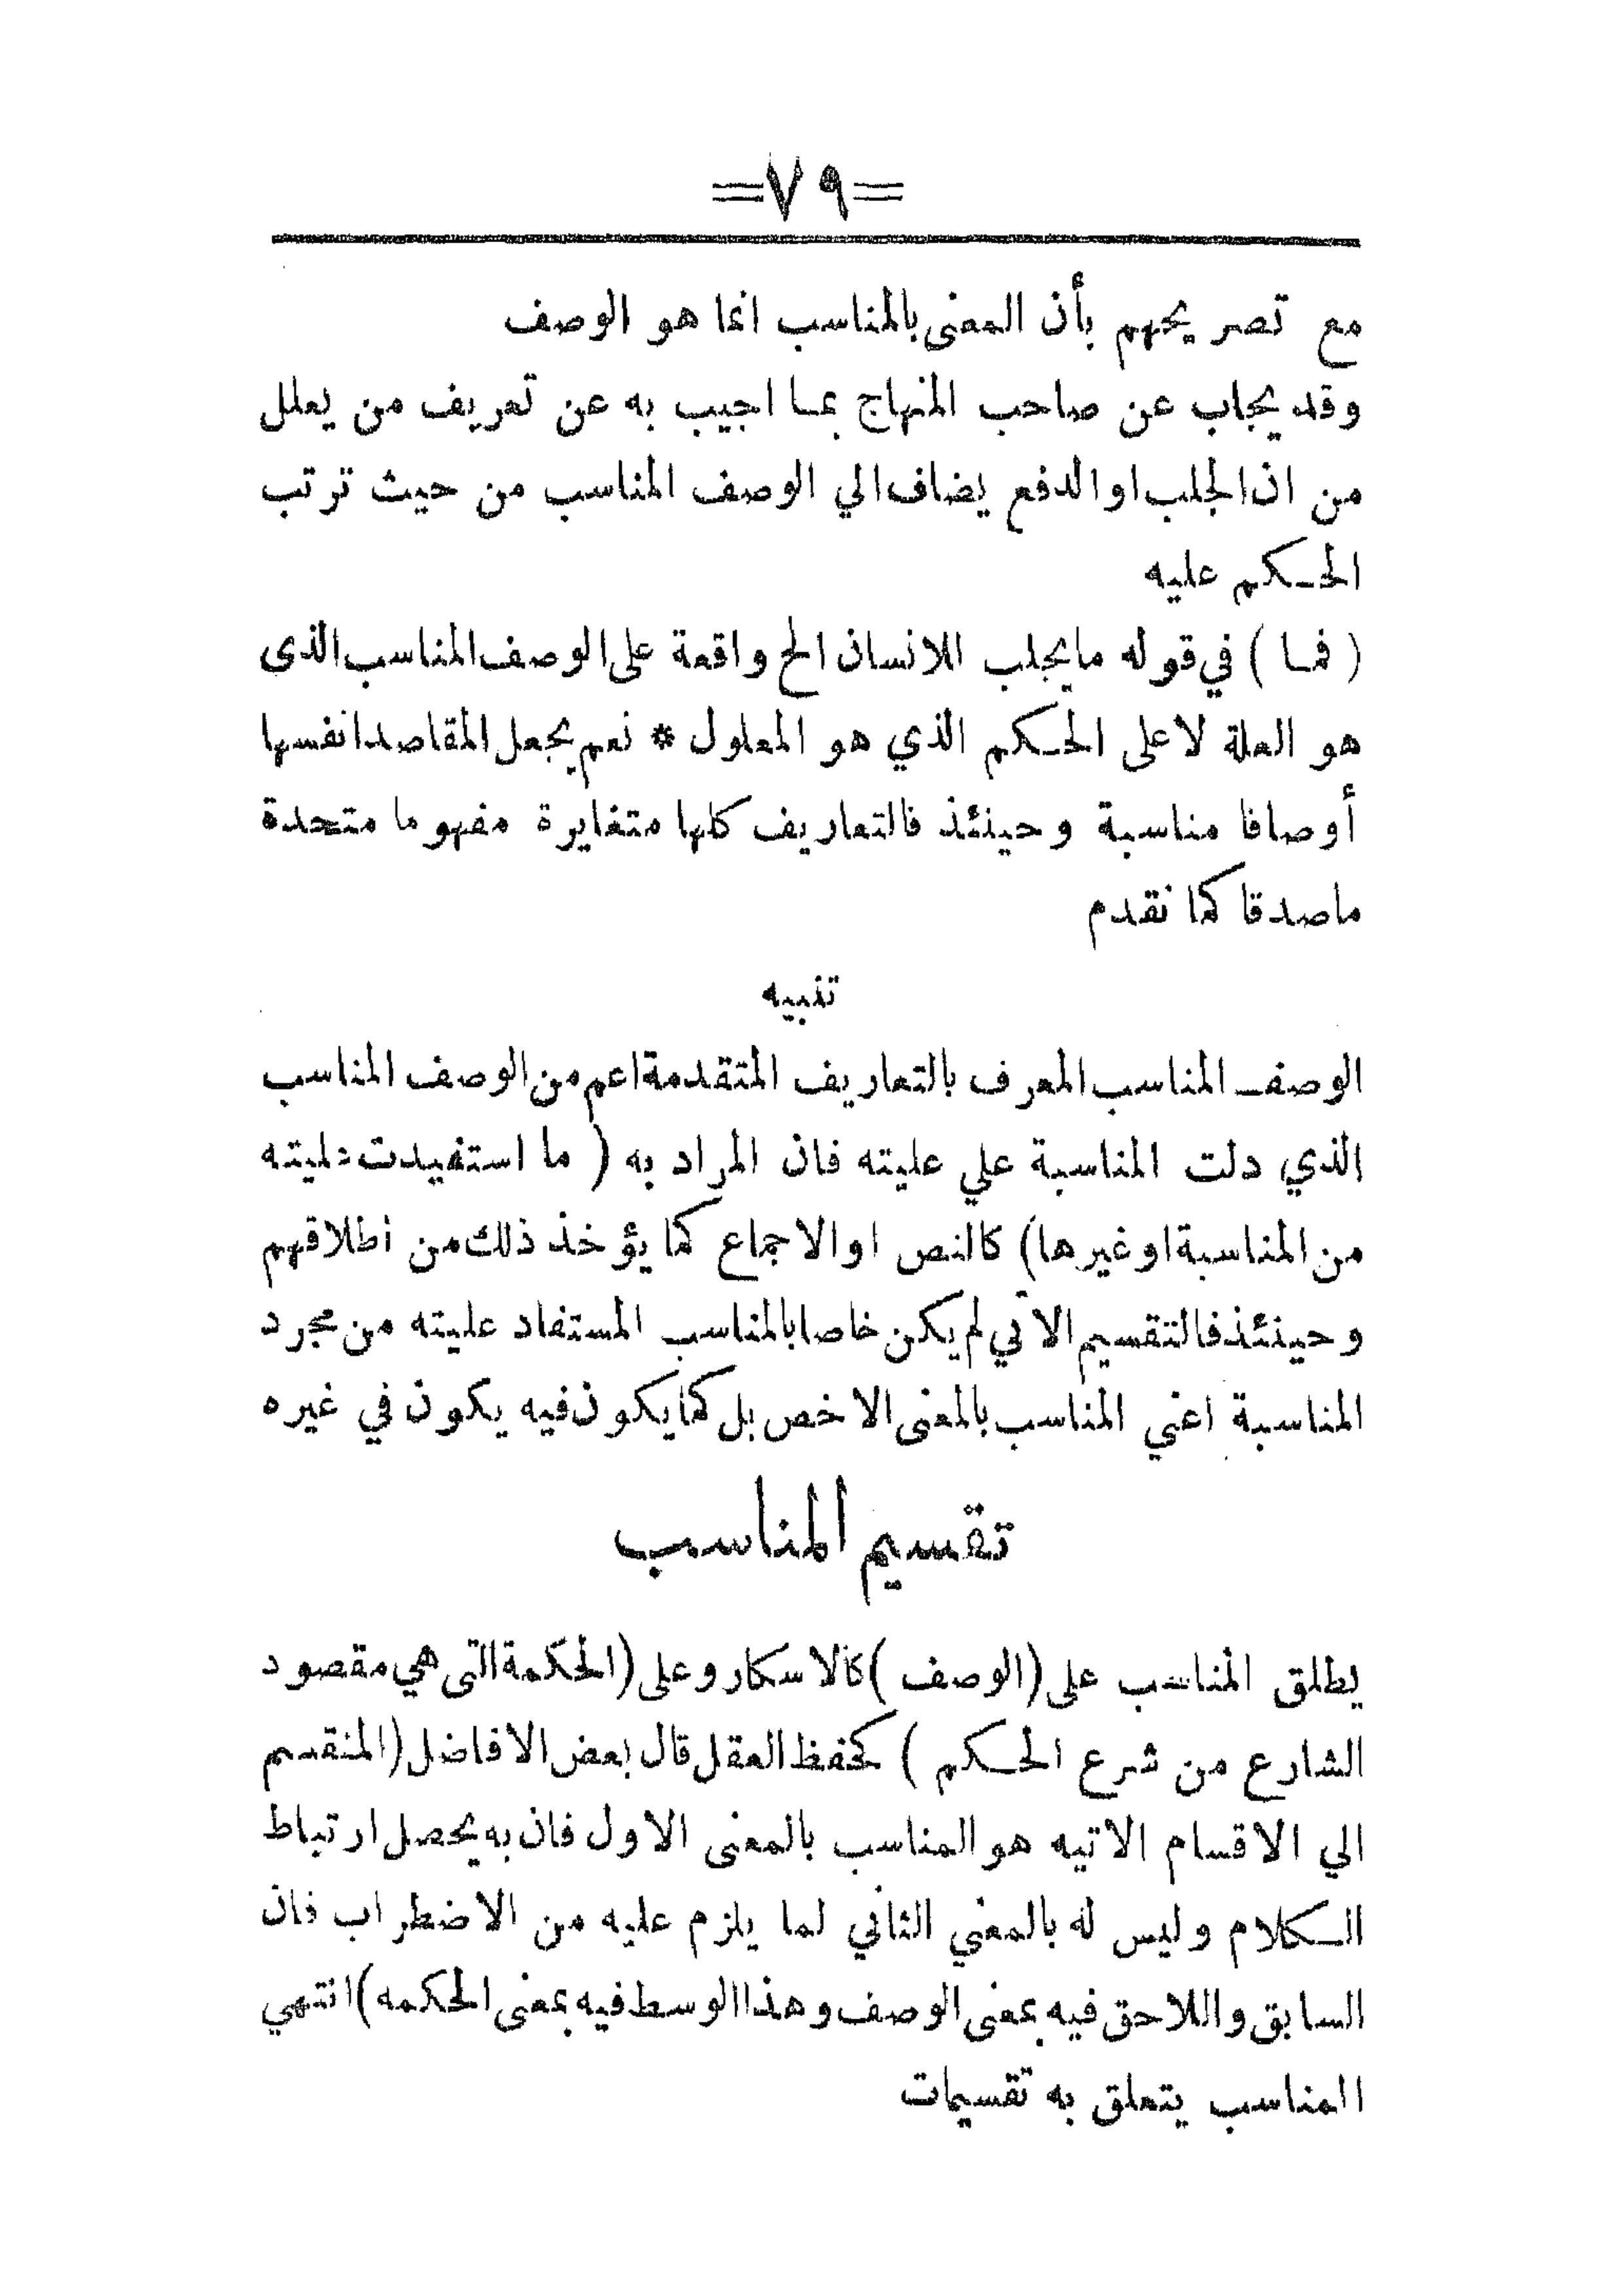 =٧٩=
مع تصريحهم بأن المعنى بالمناسب انما هو الوصف
وقد يجاب عن صاحب المنهاج بما اجيب به عن تعريف من يعلل
من ان الجلب او الدفع يضاف الي الوصف المناسب من حيث ترتب
الحكم عليه
( فما ) في قوله ما يجلب للانسان الخ واقعة على الوصف المناسب الذى
هو العلة لا على الحكم الذي هو المعلول * نعم يجعل المقاصد انفسها
أوصافا مناسبة وحينئذ فالتعاريف كلها متغايرة مفهوما متحدة
ماصدقا كما تقدم
تنبيه
الوصف المناسب المعرف بالتعاريف المتقدمة اعم من الوصف المناسب
الذي دلت المناسبة علي عليته فان المراد به ( ما استفيدت عليته
من المناسبة او غيرها) كالنص او الاجماع كما يؤخذ ذلك من اطلاقهم
وحينئذ فالتقسيم الآتي لم يكن خاصا بالمناسب المستفاد عليته من مجرد
المناسبة اعني المناسب بالمعنى الاخص بل كما يكون فيه يكون في غيره
تقسيم المناسب
يطلق المناسب على (الوصف ) كالاسكار وعلى (الحكمة التى هي مقصود
الشارع من شرع الحكم ) كحفظ العقل قال بعض الافاضل (المنقسم
الي الاقسام الاتيه هو المناسب بالمعنى الاول فان به يحصل ارتباط
الكلام وليس له بالمعني الثاني لما يلزم عليه من الاضطراب فان
السابق واللاحق فيه بمعنى الوصف وهذا الوسط فيه بمعنى الحكمه) انتهي
المناسب يتعلق به تقسيمات